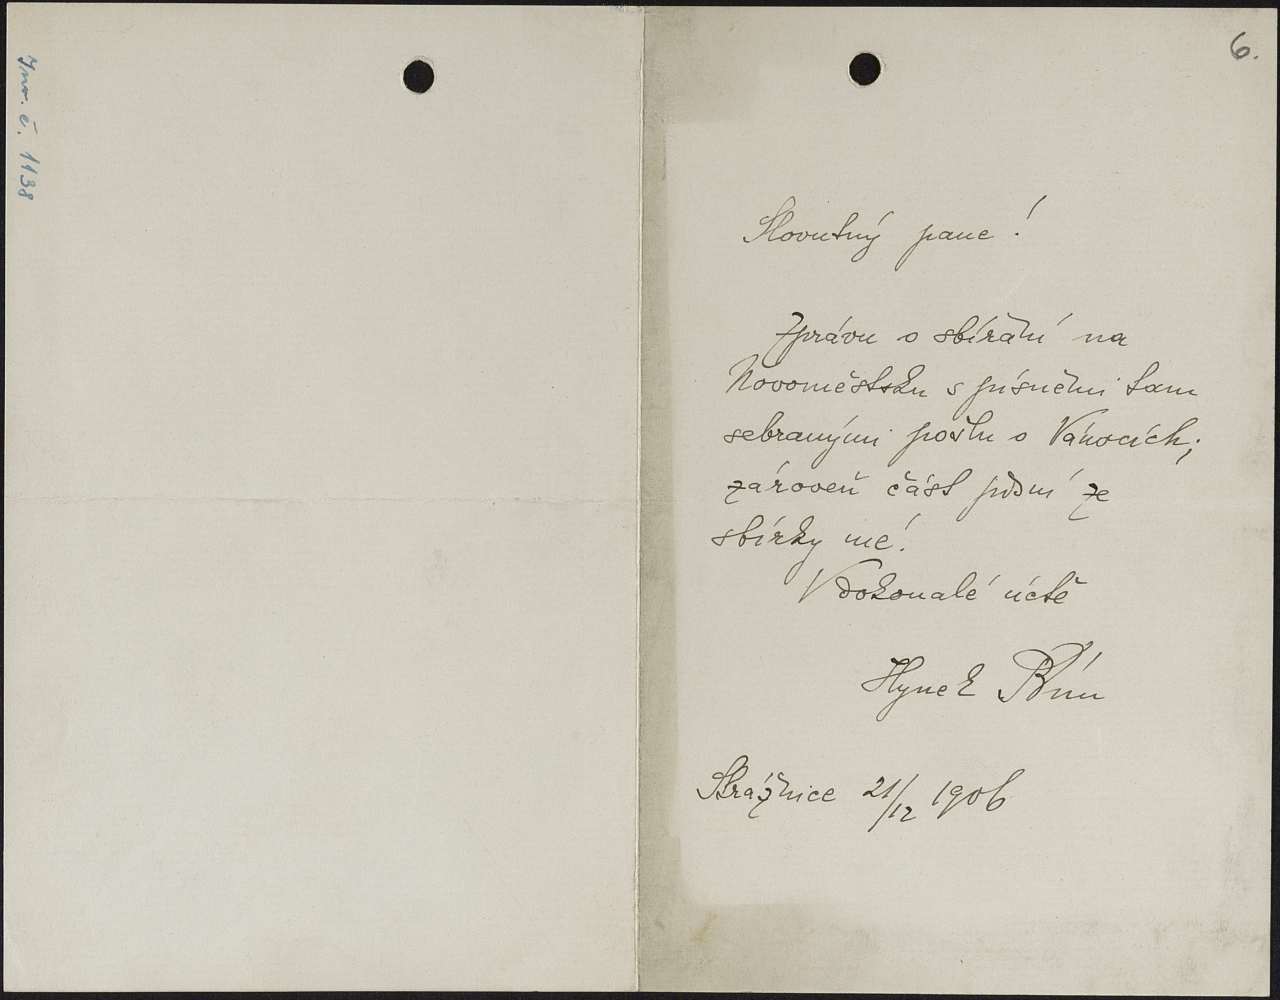 Inv. č. 1138
6.
Slovutný pane!
Zprávu o sbírání na
Novoměstsku s písněmi tam
sebranými pošlu o Vánocích;
zároveň část písní ze
sbírky mé!
V dokonalé úctě
Hynek Bím
Strážnice 21/12 1906